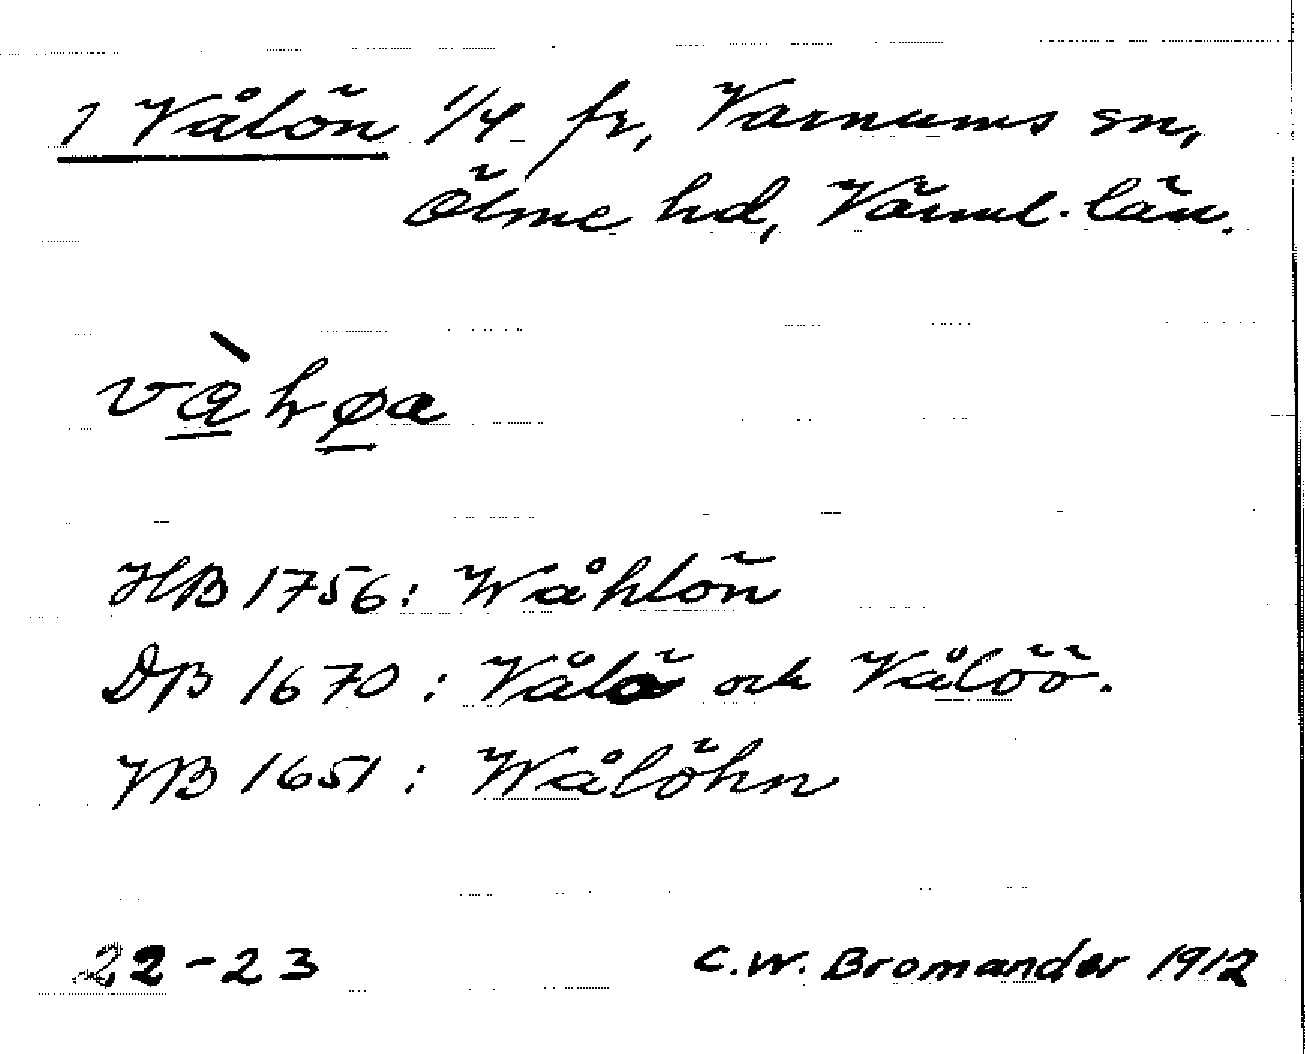 1 Vålön 1/4 fr, Varnums sn,
Ölme hd, Värml. län.
HB 1756: Wåhlön
DB 1670: Vålö och Vålöö.
JB 1651: Wålöhn
22-23 C.W. Bromander 1912